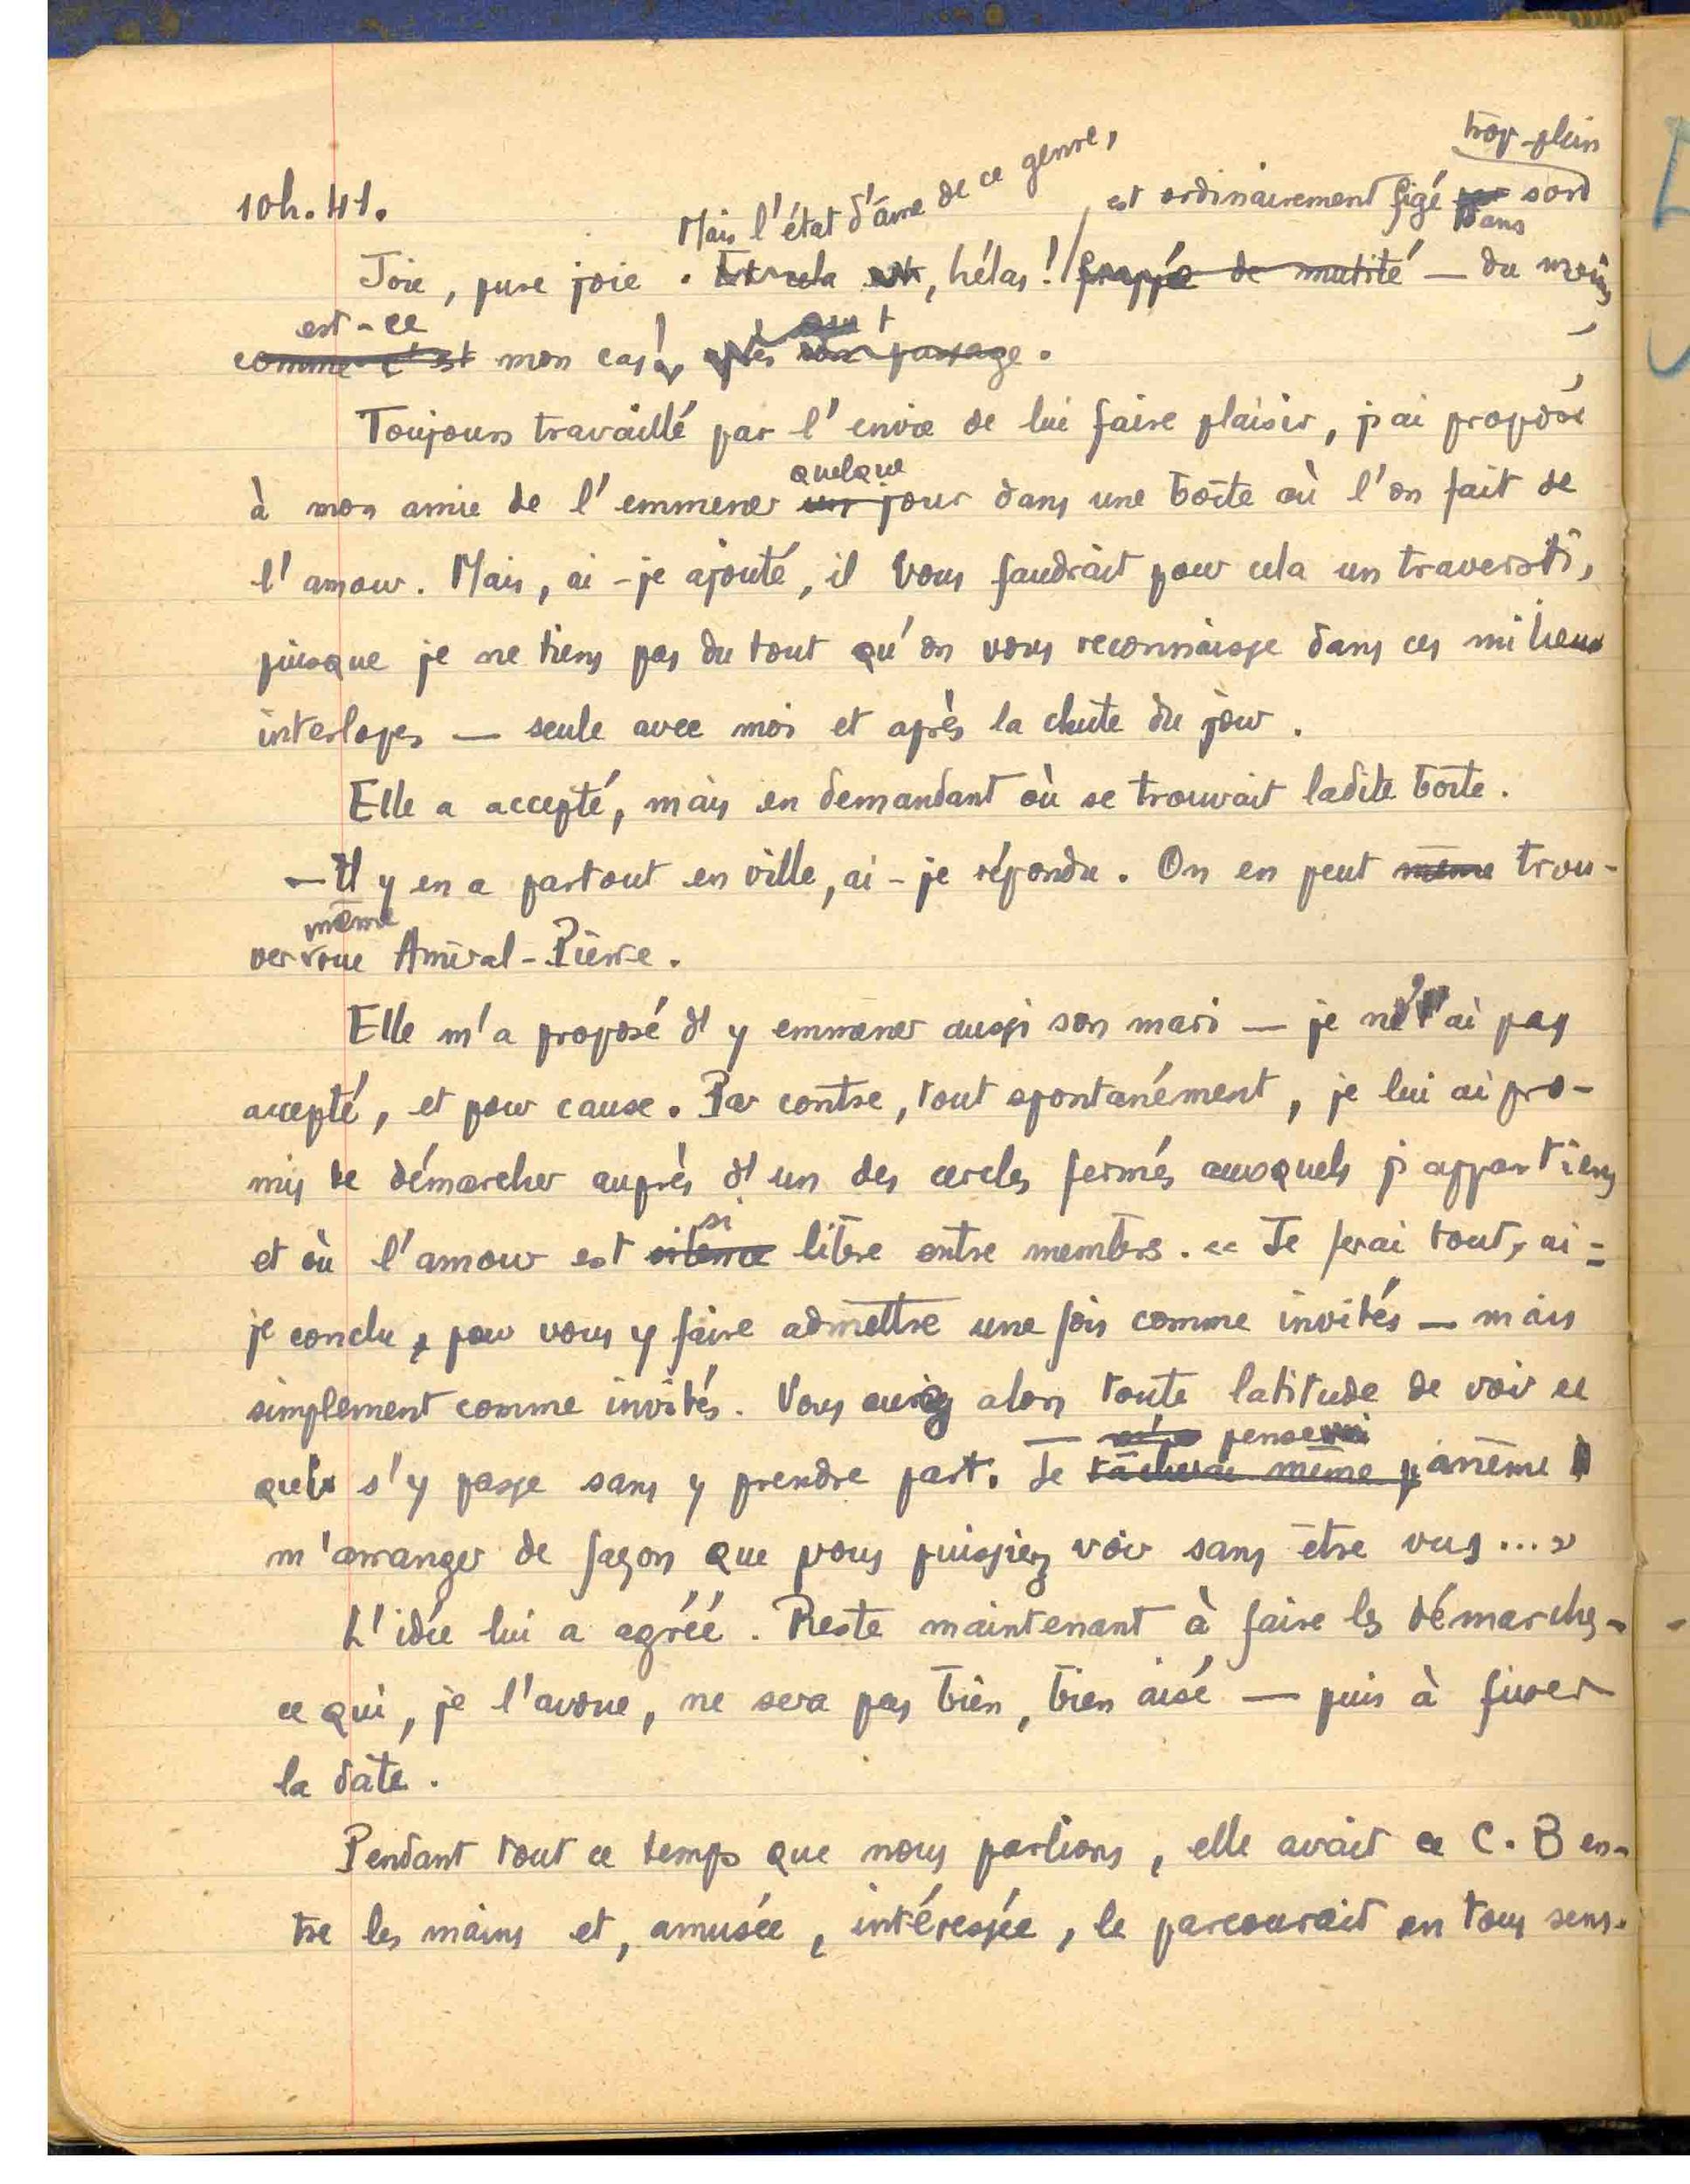 10h.41.
Mais l'état d'âme de ce genre, est ordinairement figé dans son trop-plein
Joie, pure joie. Et cela est, hélas! frappée de mutité — du moins
est-ce
comme c'est mon cas! après son passage.
Toujours travaillé par l'envie de lui faire plaisir, j'ai proposé
quelque
à mon amie de l'emmener un jour dans une boîte où l'on fait de
l'amour. Mais, ai-je ajouté, il vous faudrait pour cela un travesti,
puisque je ne tiens pas du tout qu'on vous reconnaisse dans ces milieux
interlopes — seule avec moi et après la chute du jour.
Elle a accepté, mais en demandant où se trouvait ladite boîte.
— Il y en a partout en ville, ai-je répondu. On en peut même trou-
même
ver rue Amiral-Pierre.
Elle m'a proposé d'y emmener aussi son mari — je ne l'ai pas
accepté, et pour cause. Par contre, tout spontanément, je lui ai pro-
mis de démarcher auprès d'un des cercles fermés auxquels j'appartiens
si
et où l'amour est silence libre entre membres. « Je ferai tout, ai-
je conclu, pour vous y faire admettre une fois comme invités — mais
simplement comme invités. Vous aurez alors toute latitude de voir ce
pense
qui s'y passe sans y prendre part. Je tâcherai même à même
m'arranger de façon que vous puissiez voir sans être vus... »
L'idée lui a agréé. Reste maintenant à faire les démarches -
ce qui, je l'avoue, ne sera pas bien, bien aisé — puis à fixer
la date.
Pendant tout ce temps que nous parlions, elle avait ce C.B en-
tre les mains et, amusée, intéressée, le parcourait en tous sens.